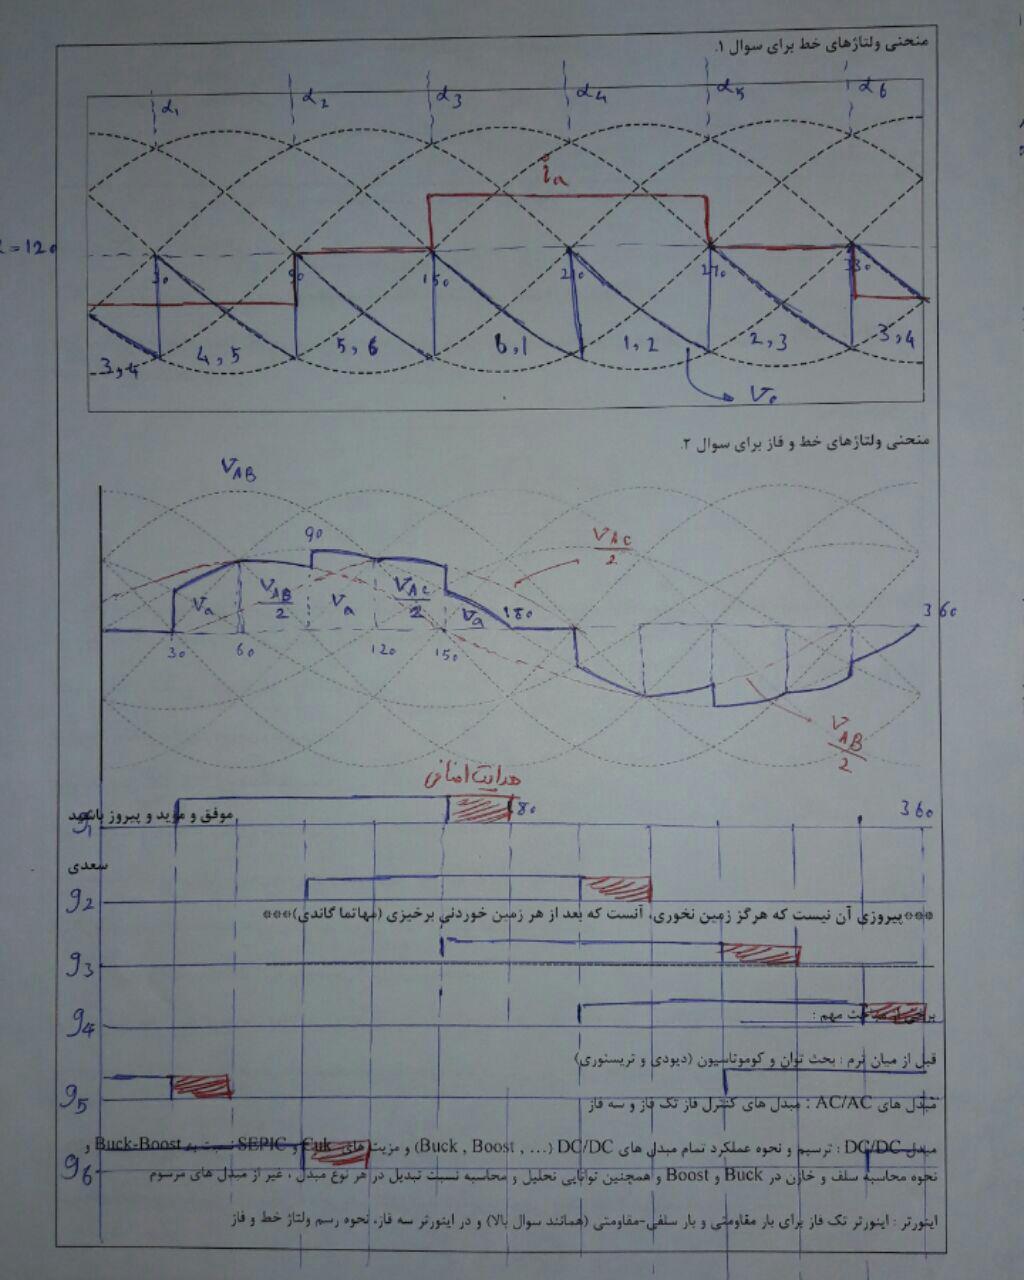 منحنی ولتاژهای خط برای سوال ۱.
α1 α2 α3 α4 α5 α6
ia
= 120
30 90 150 210 270 330
3,4 4,5 5,6 6,1 1,2 2,3 3,4
Vo
منحنی ولتاژهای خط و فاز برای سوال ۲.
VAB
90
VAC/2
Va VAB/2 Va VAC/2 Va 180 360
30 60 120 150
VAB/2
هدایت اضافی
g1 موفق و موید و پیروز باشید 180 360
سعدی
g2
***پیروزی آن نیست که هرگز زمین نخوری، آنست که بعد از هر زمین خوردنی برخیزی (مهاتما گاندی)***
g3
g4
برخی از مباحث مهم :
قبل از میان ترم : بحث توان و کوموتاسیون (دیودی و تریستوری)
g5
مبدل های AC/AC : مبدل های کنترل فاز تک فاز و سه فاز
مبدل DC/DC : ترسیم و نحوه عملکرد تمام مبدل های DC/DC (Buck , Boost , …) و مزیت های Cuk و SEPIC نسبت به Buck-Boost و
g6
نحوه محاسبه سلف و خازن در Buck و Boost و همچنین توانایی تحلیل و محاسبه نسبت تبدیل در هر نوع مبدل ، غیر از مبدل های مرسوم
اینورتر : اینورتر تک فاز برای بار مقاومتی و بار سلفی-مقاومتی (همانند سوال بالا) و در اینورتر سه فاز، نحوه رسم ولتاژ خط و فاز